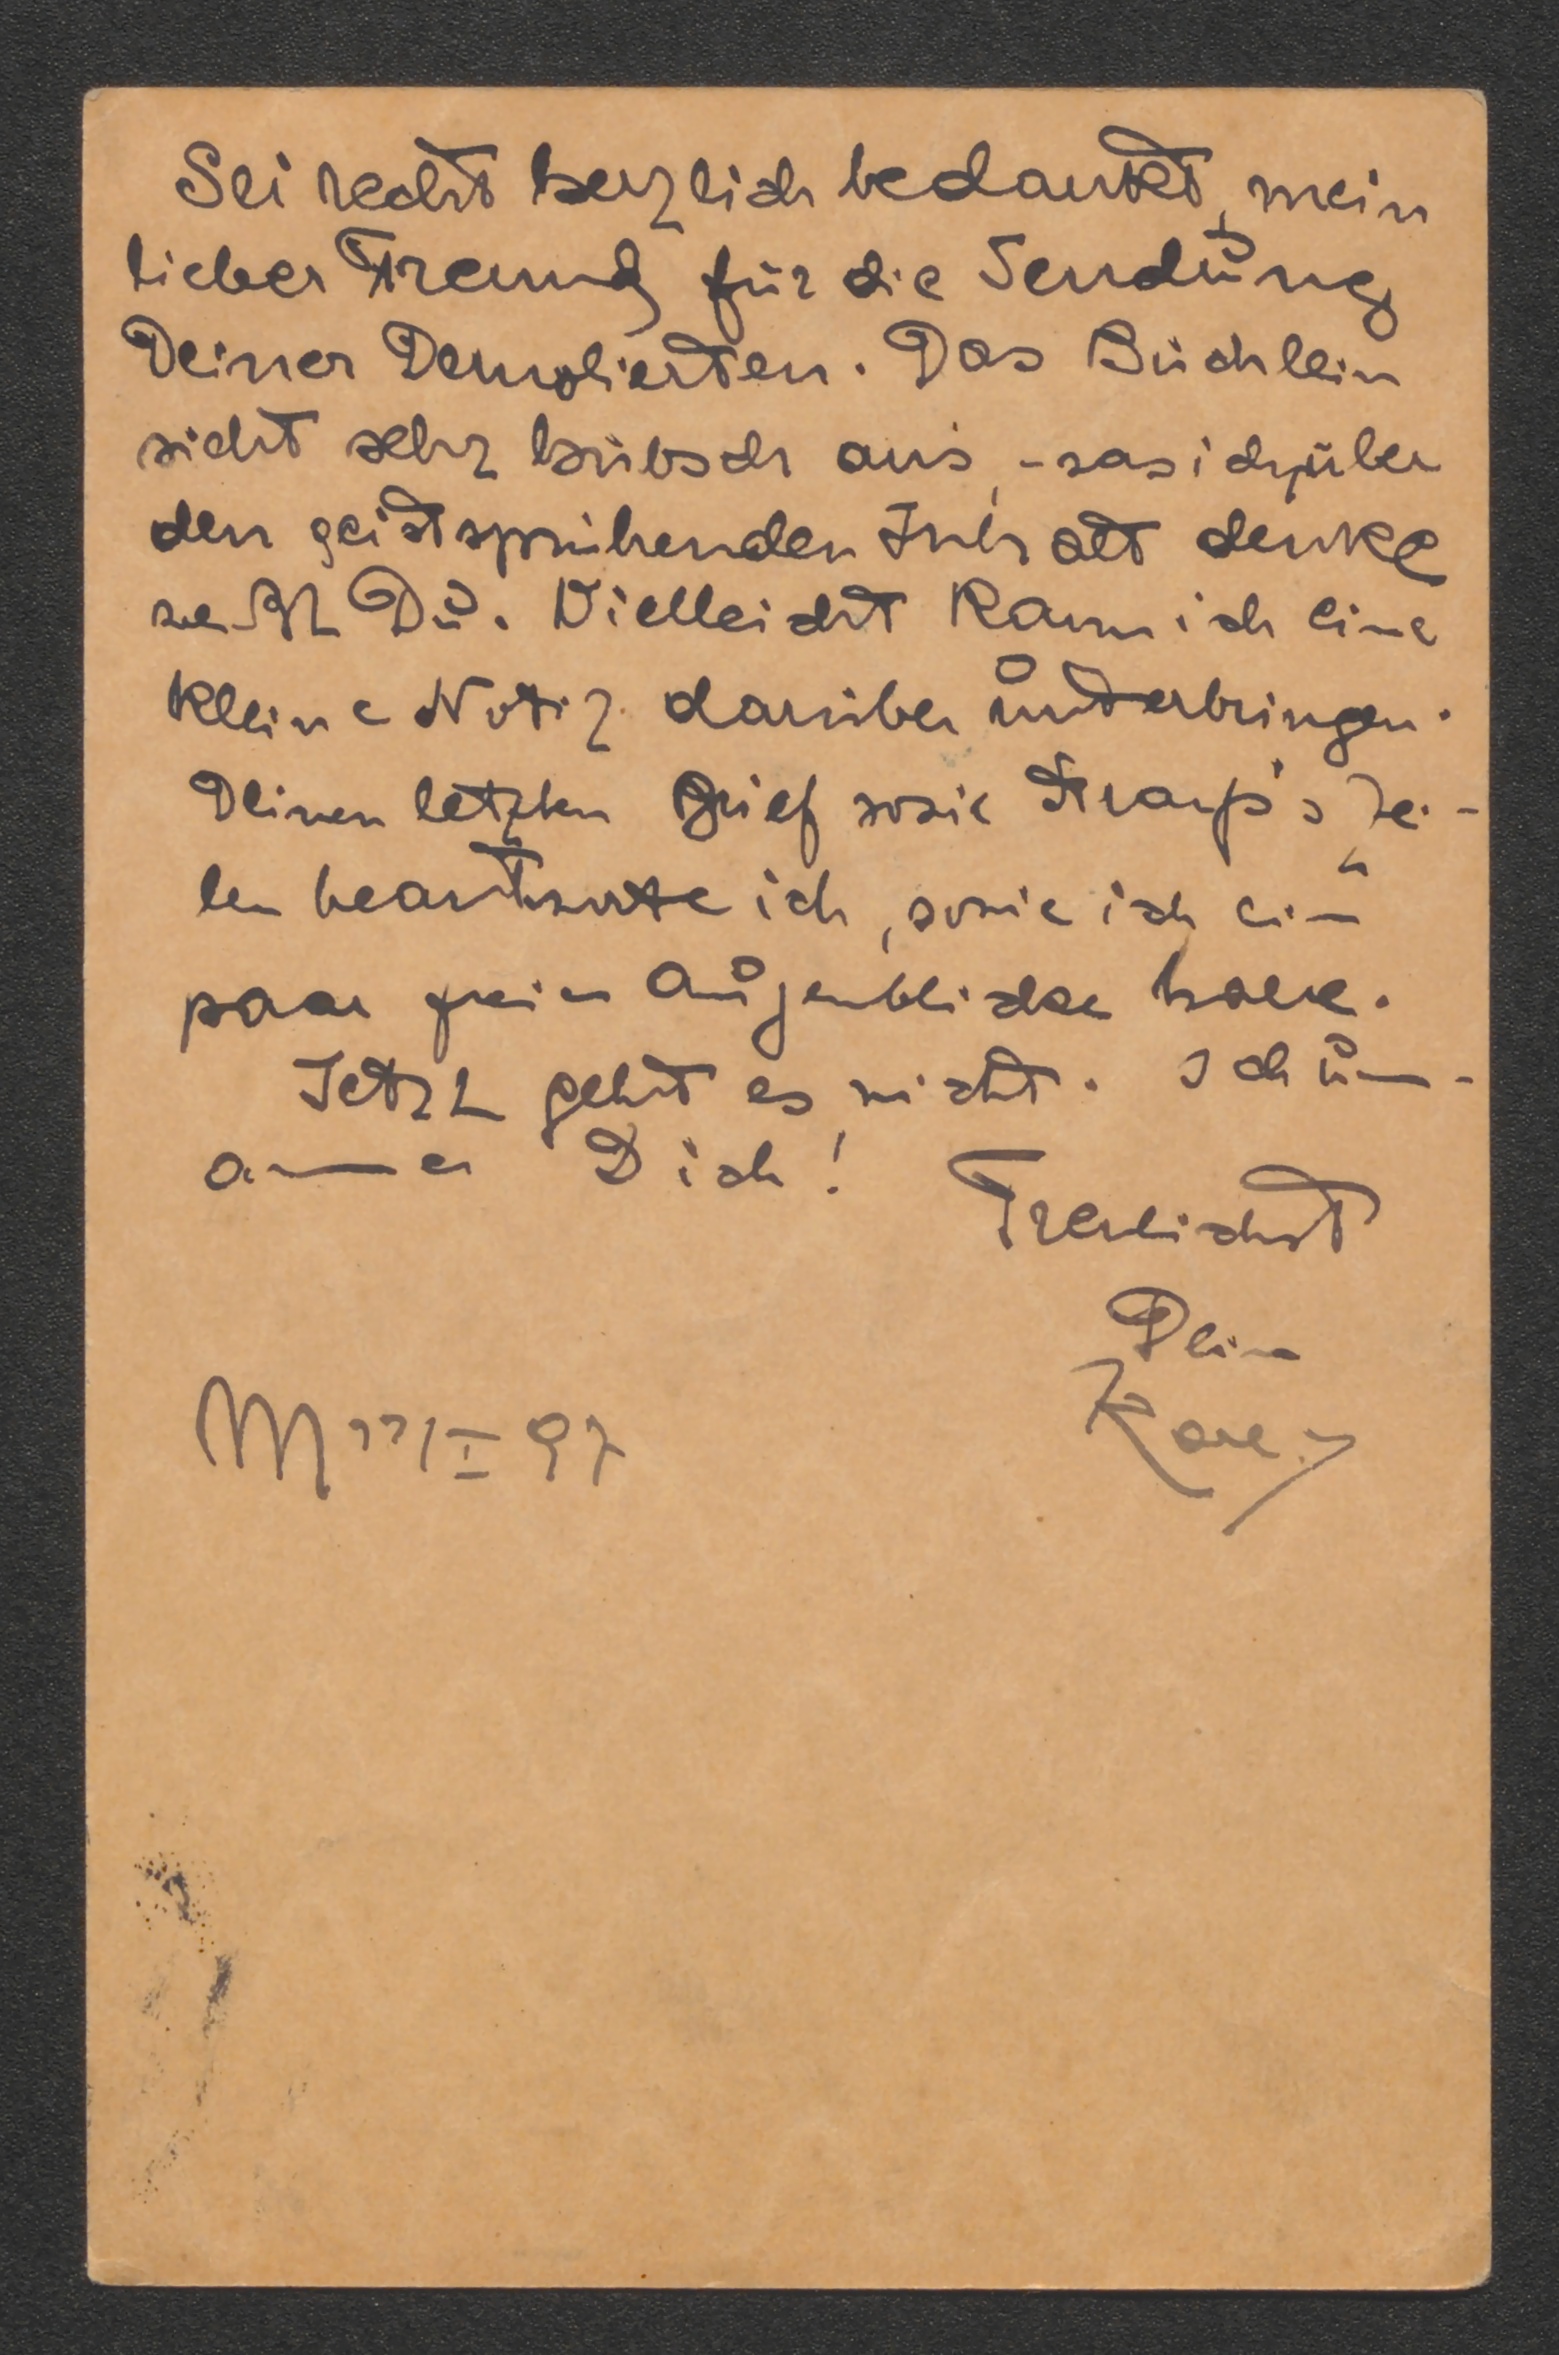 Sei recht herzlich bedankt, mein
lieber Freund für die Sendung
Deiner Demolierten. Das Büchlein
sieht sehr hübsch aus, – was ich über
den geistsprühenden Inhalt denke
weißt Du. Vielleicht kann ich eine
kleine Notiz darüber unterbringen.
Deinen letzten Brief sowie Zei-
len beantworte ich, sowie ich ein
paar freie Augenblicke habe.
Jetzt geht es nicht. Ich um-
arme Dich!
Treulichst
Dein
M I 97